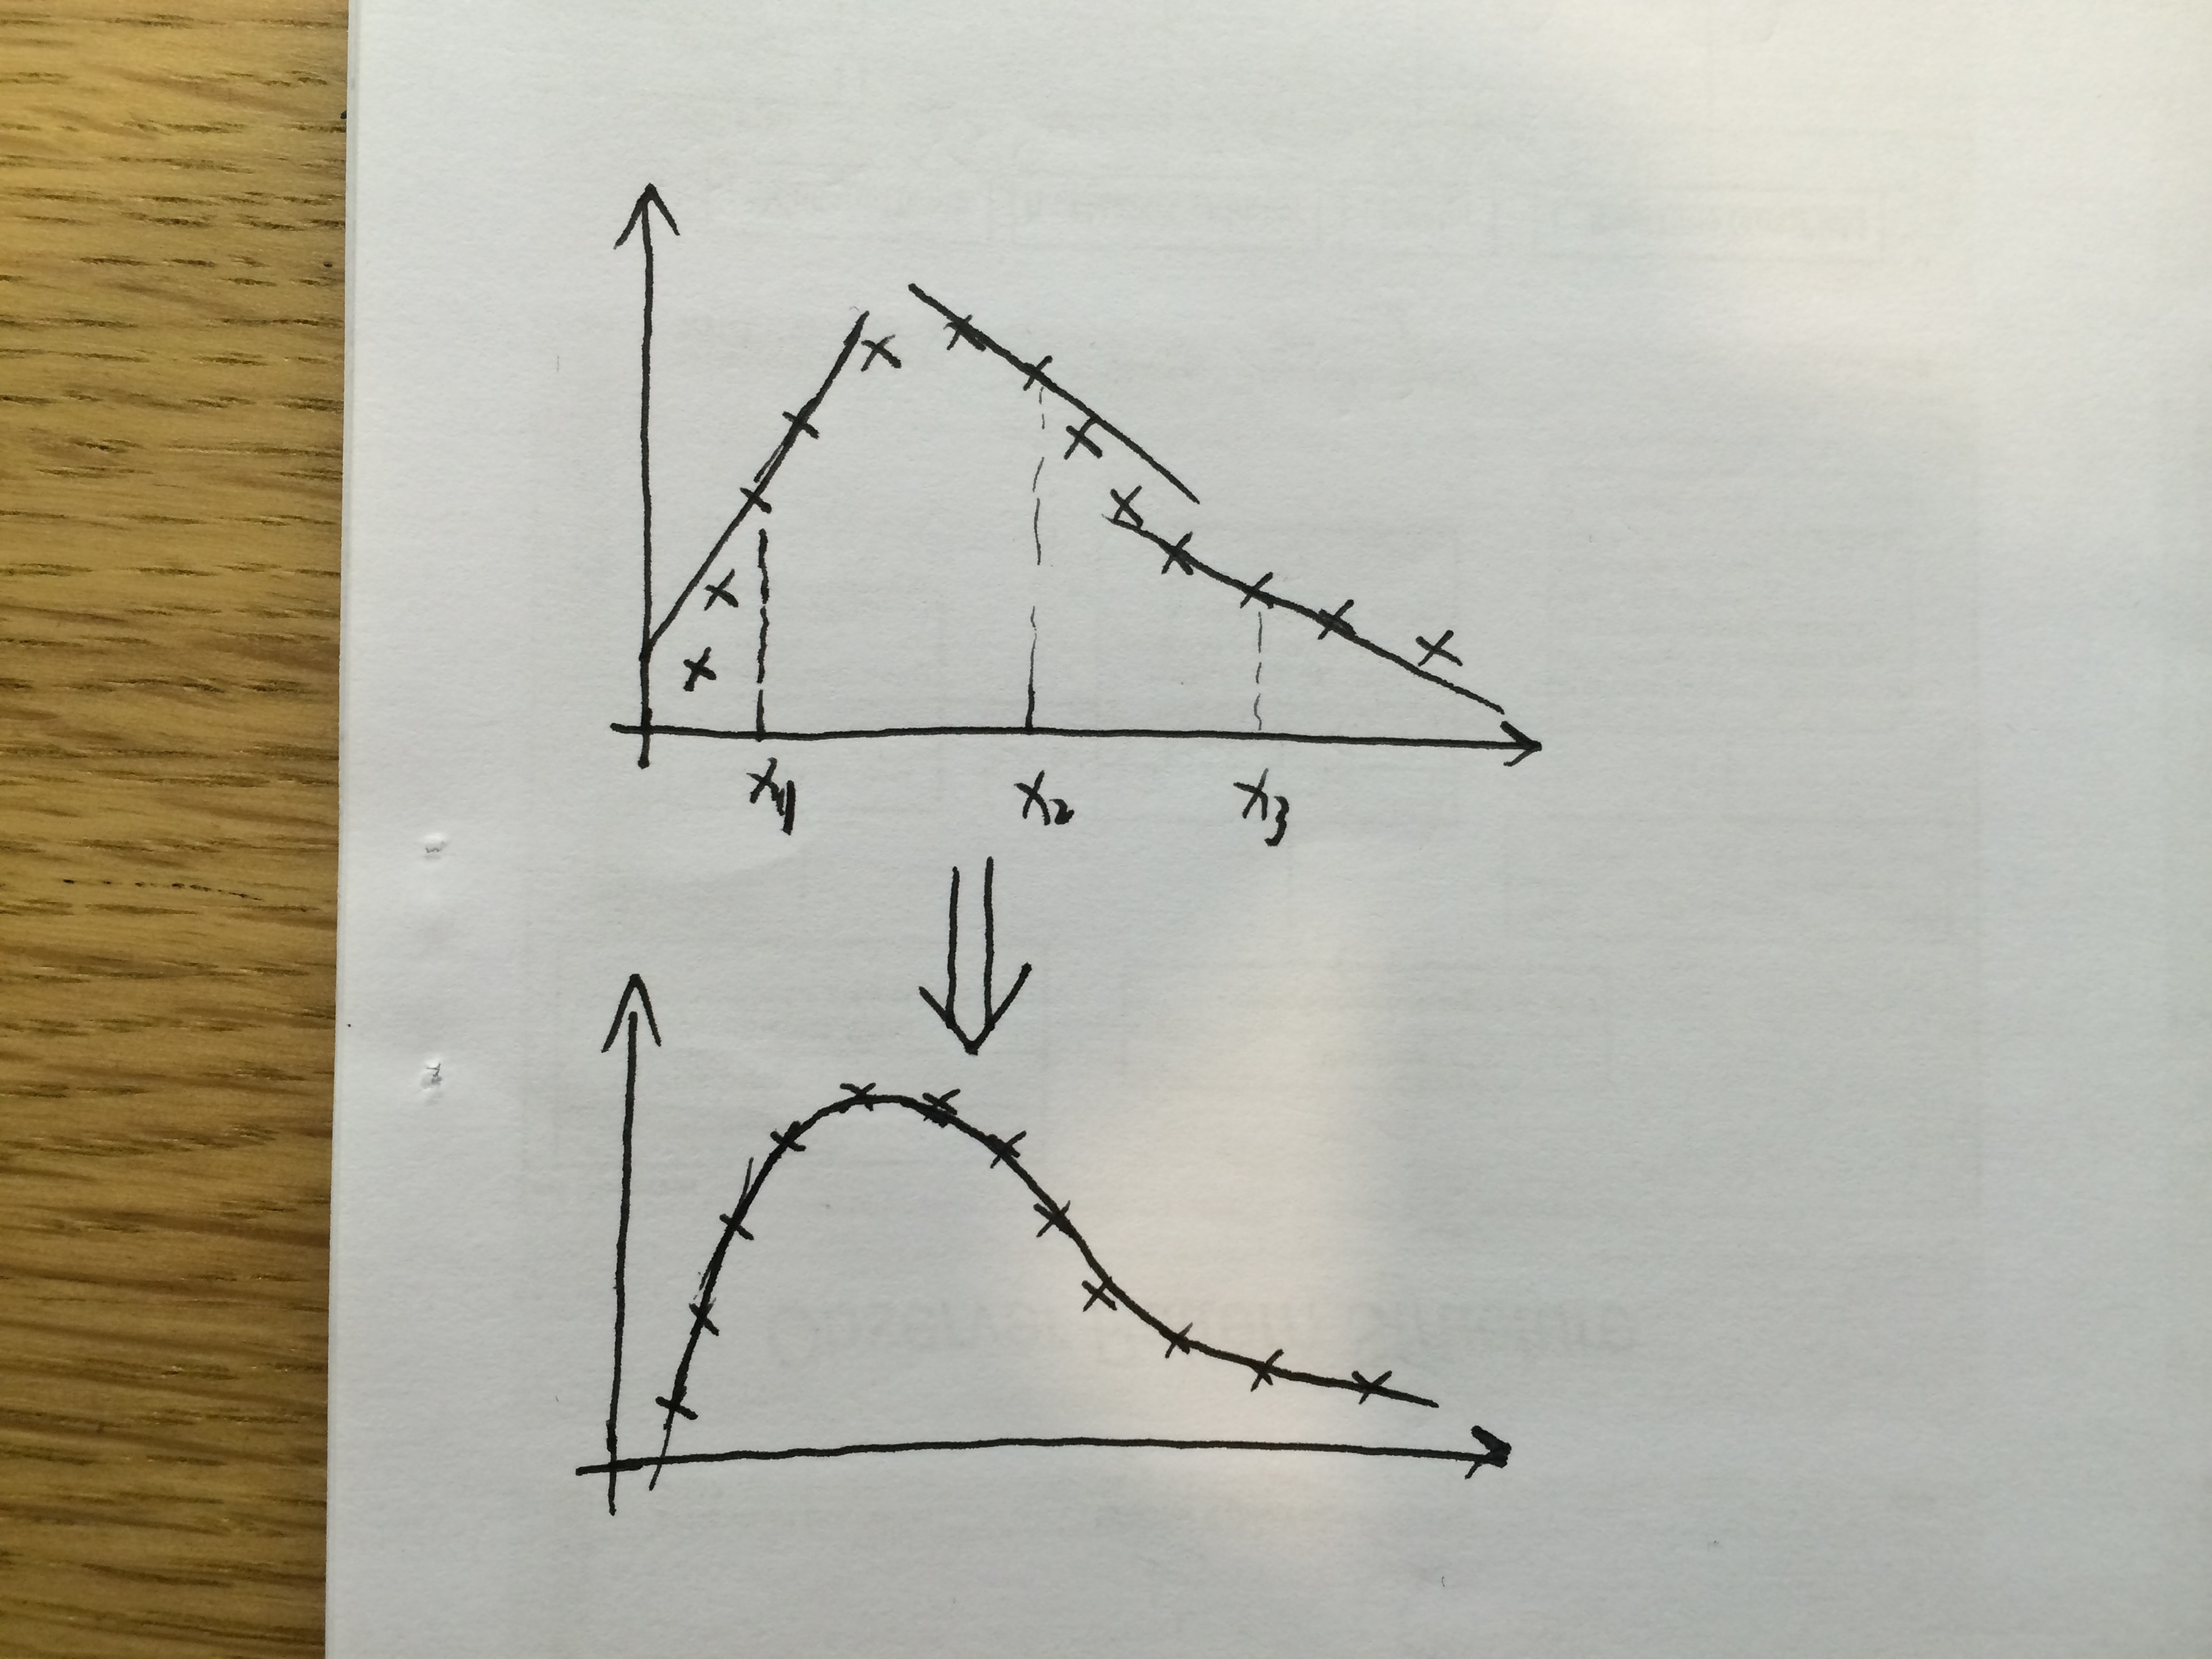 x1 x2 x3